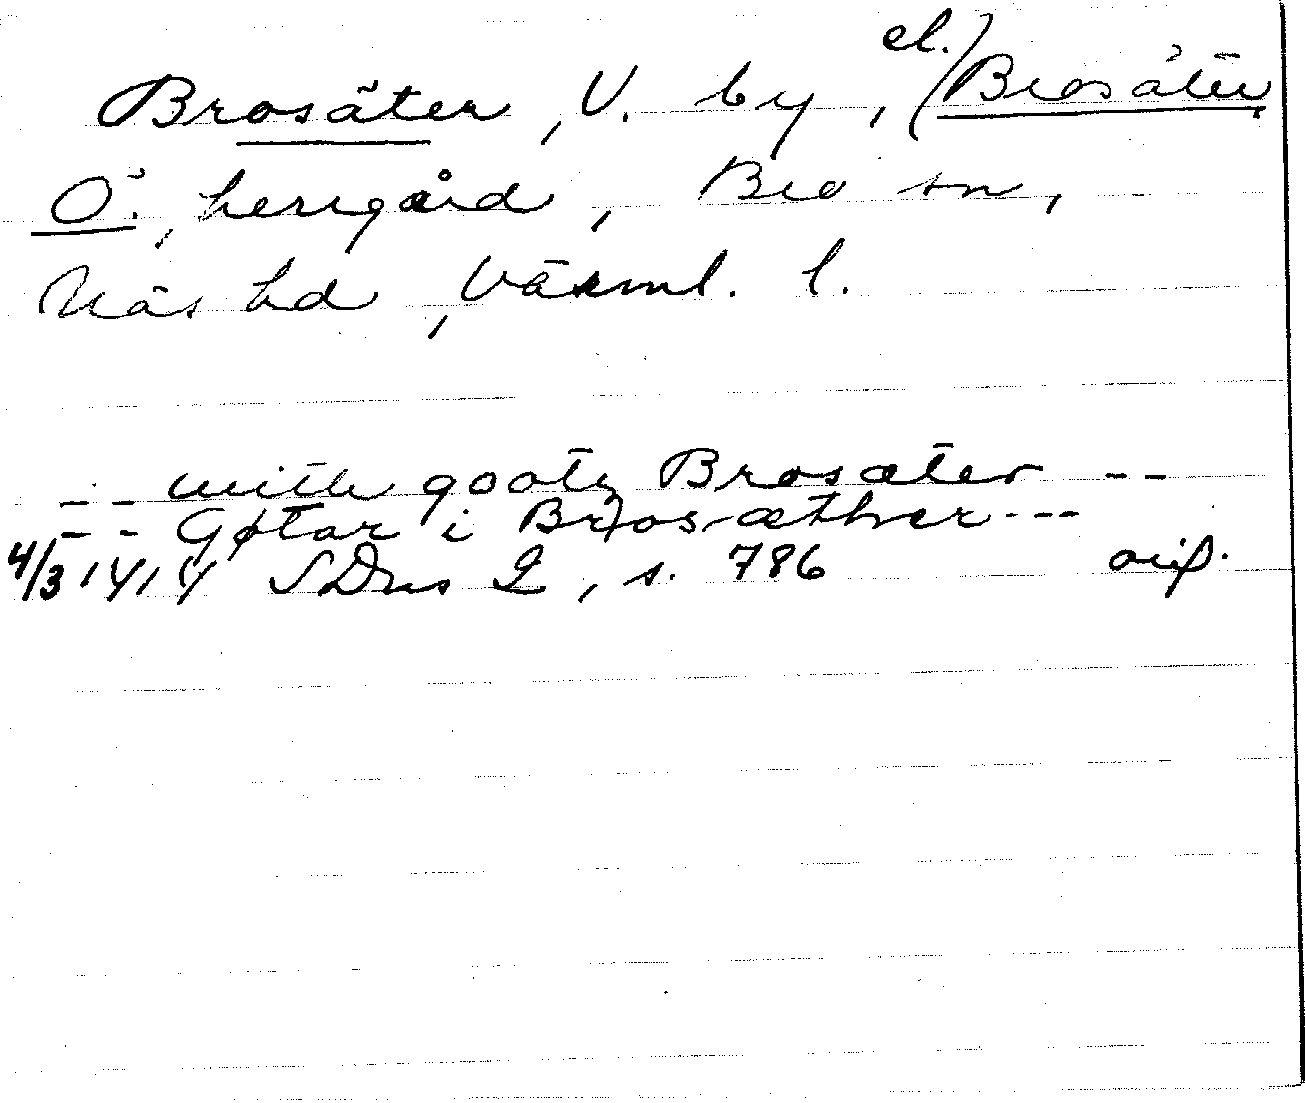 el.)
Brosäter, V. by, (Brosäter,
Ö., herrgård, Bro sn,
Näs hd, Värml. l.
-- mitth gootz Brosæter --
-- Gøtar i Brosæther ---
4/3 1414 SDns 2, s. 786 orig.